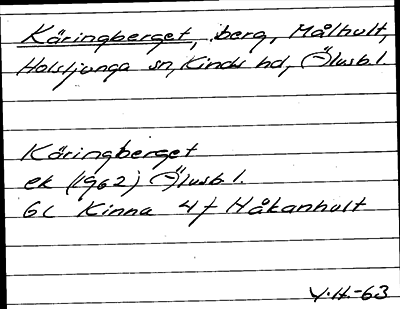 Käringberget, berg, Målhult,
Holsljunga sn, Kinds hd, Älvsb. l.
Käringberget
ek (1962) Älvsb l.
6c Kinna 4f Håkanhult
Y.H.-63